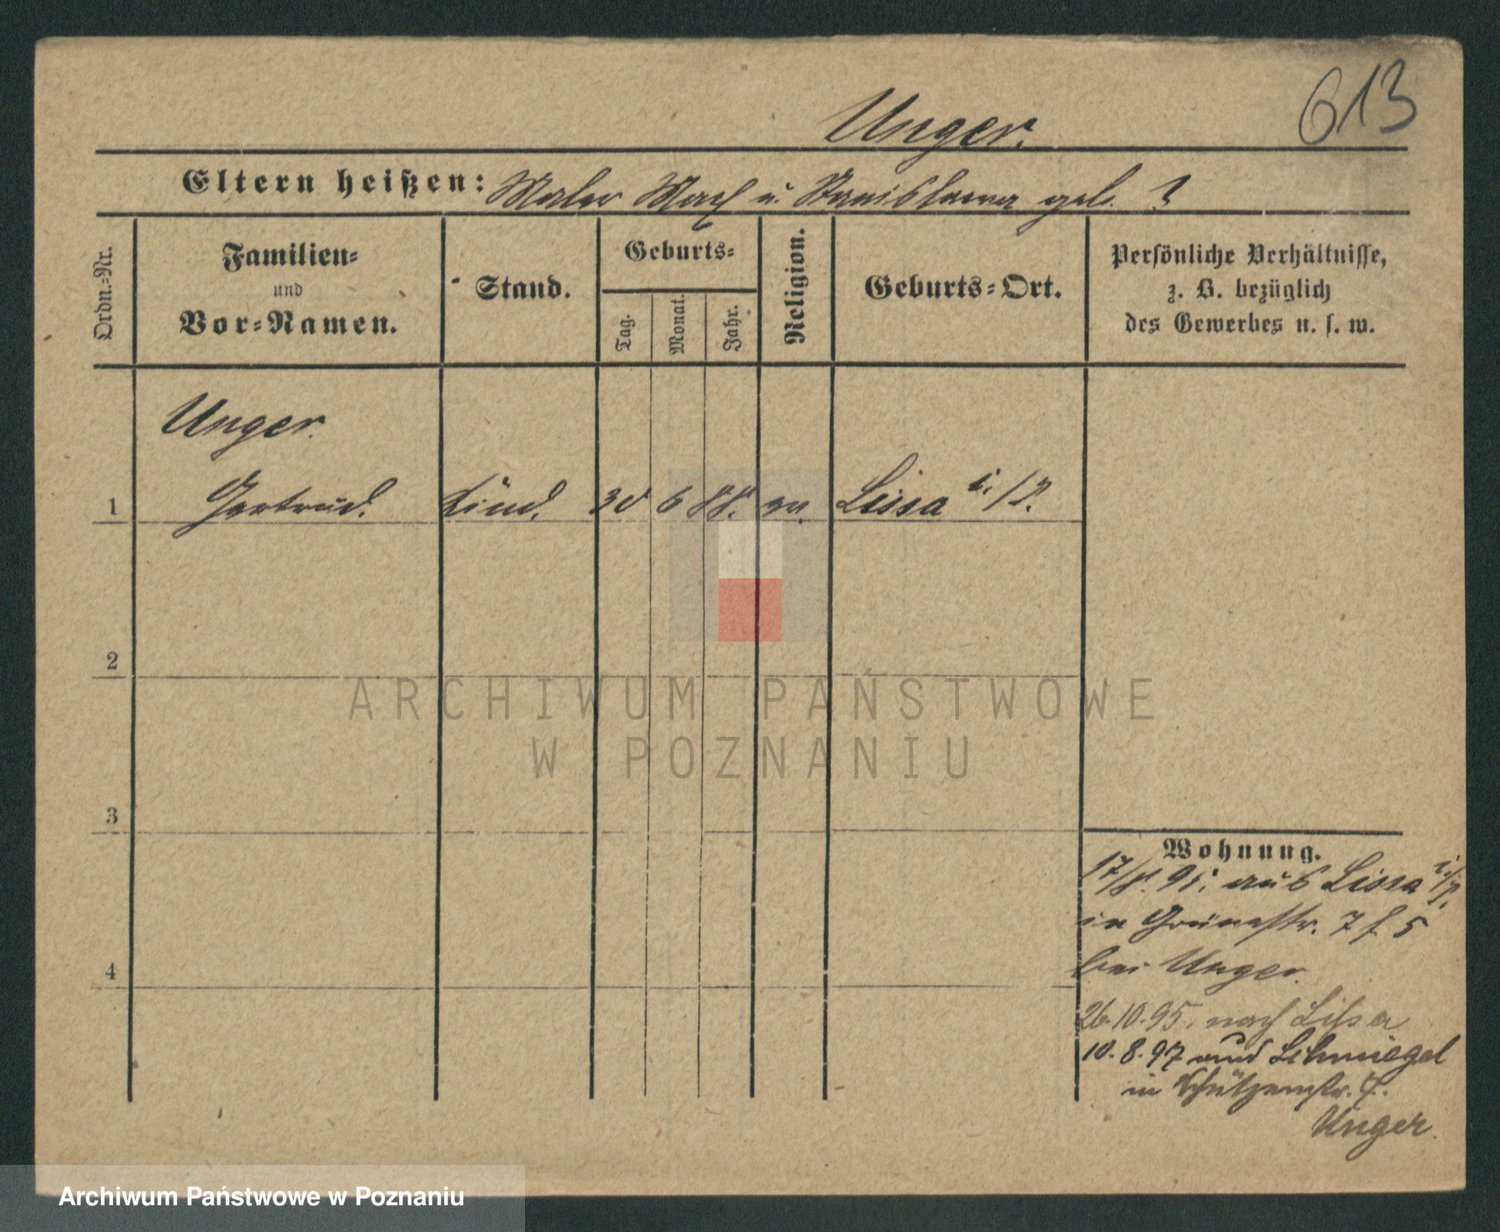 613
Unger.
Eltern heißen: Maler Max u. Stanislawa geb. ?
Ordn.-Nr.
Familien-
und
Vor-Namen.
Stand.
Geburts-
Tag.
Monat.
Jahr.
Religion.
Geburts-Ort.
Persönliche Verhältnisse,
z. B. bezüglich
des Gewerbes u. s. w.
Unger.
1 Gertrud. Kind. 30 6 88. ev. Lissa i/P.
2
ARCHIWUM PAŃSTWOWE
W POZNANIU
3
Wohnung.
17/8. 95. aus Lissa i/P.
in Grünestr. 7 f 5
bei Unger.
4
26.10.95. nach Lissa
10.8.97 aus Schmiegel
in Schützenstr. 7.
Unger.
Archiwum Państwowe w Poznaniu